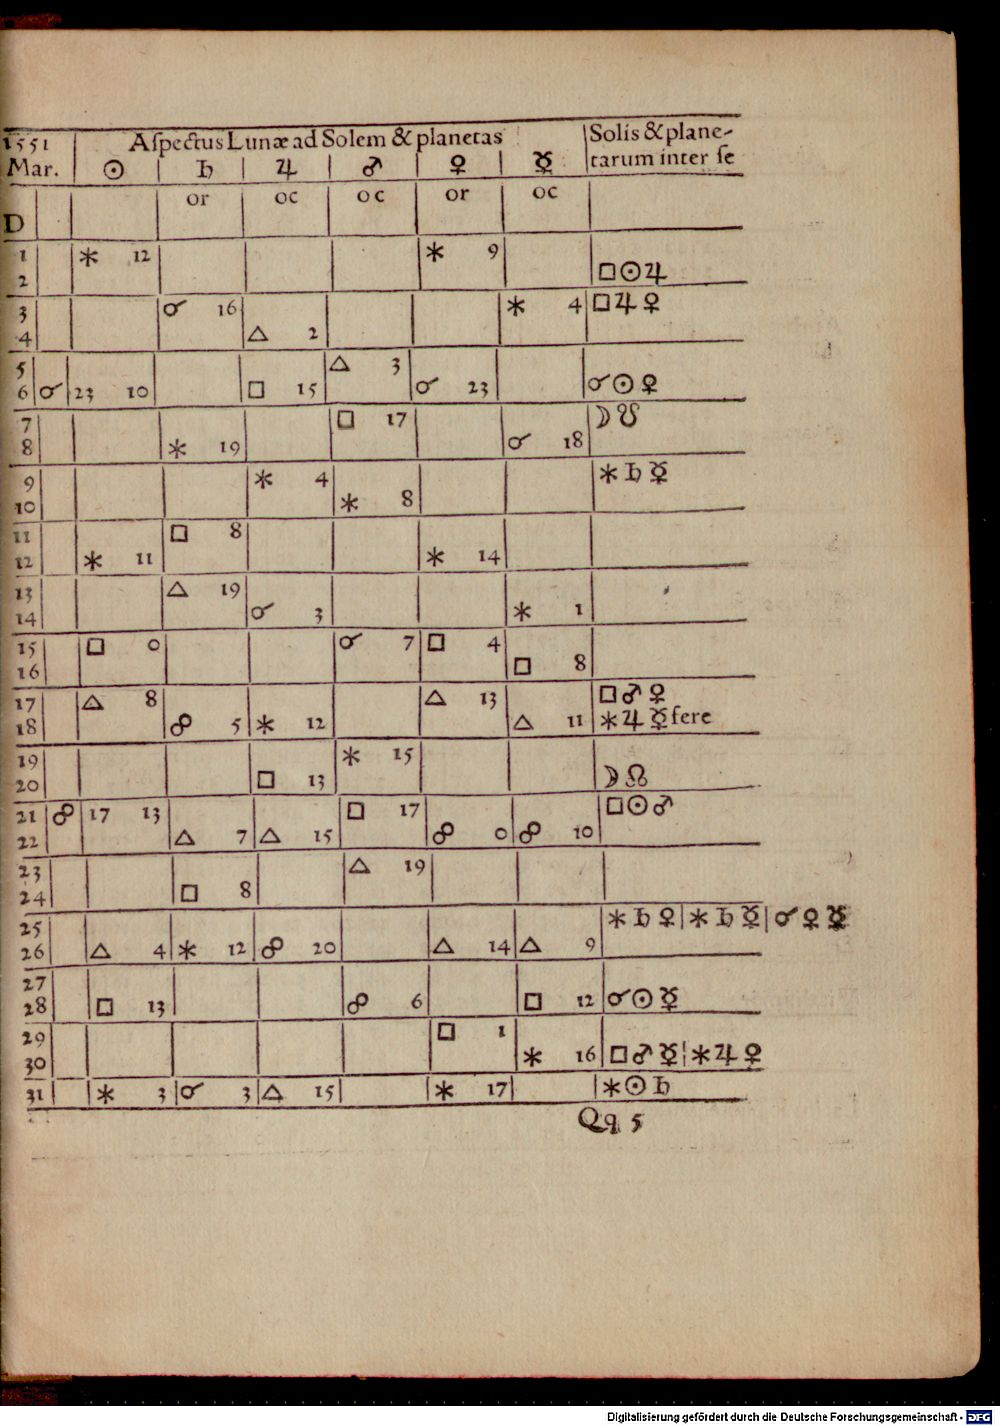 1551 | Aſpectus Lunæ ad Solem & planetas | Solis & plane-
Mar. | ☉ | ♄ | ♃ | ♂ | ♀ | ☿ | tarum inter ſe
or | oc | oc | or | oc
D
1 | ✱ 12 | ✱ 9
2 | □☉♃
3 | ☌ 16 | ✱ 4 | □♃♀
4 | △ 2
5 | △ 3
6 | ☌ | 23 10 | □ 15 | ☌ 23 | ☌☉♀
7 | □ 17 | ☽☋
8 | ✱ 19 | ☌ 18
9 | ✱ 4 | ✱♄☿
10 | ✱ 8
11 | □ 8
12 | ✱ 11 | ✱ 14
13 | △ 19
14 | ☌ 3 | ✱ 1
15 | □ 0 | ☌ 7 | □ 4
16 | □ 8
17 | △ 8 | △ 13 | □♂♀
18 | ☍ 5 | ✱ 12 | △ 11 | ✱♃☿fere
19 | ✱ 15
20 | □ 13 | ☽☊
21 | ☍ | 17 13 | □ 17 | □☉♂
22 | △ 7 | △ 15 | ☍ 0 | ☍ 10
23 | △ 19
24 | □ 8
25 | ✱♄♀|✱♄☿|☌♀☿
26 | △ 4 | ✱ 12 | ☍ 20 | △ 14 | △ 9
27
28 | □ 13 | ☍ 6 | □ 12 | ☌☉☿
29 | □ 1
30 | ✱ 16 | □♂☿|✱♃♀
31 | ✱ 3 | ☌ 3 | △ 15 | ✱ 17 | ✱☉♄
Qq 5
Digitalisierung gefördert durch die Deutsche Forschungsgemeinschaft - DFG